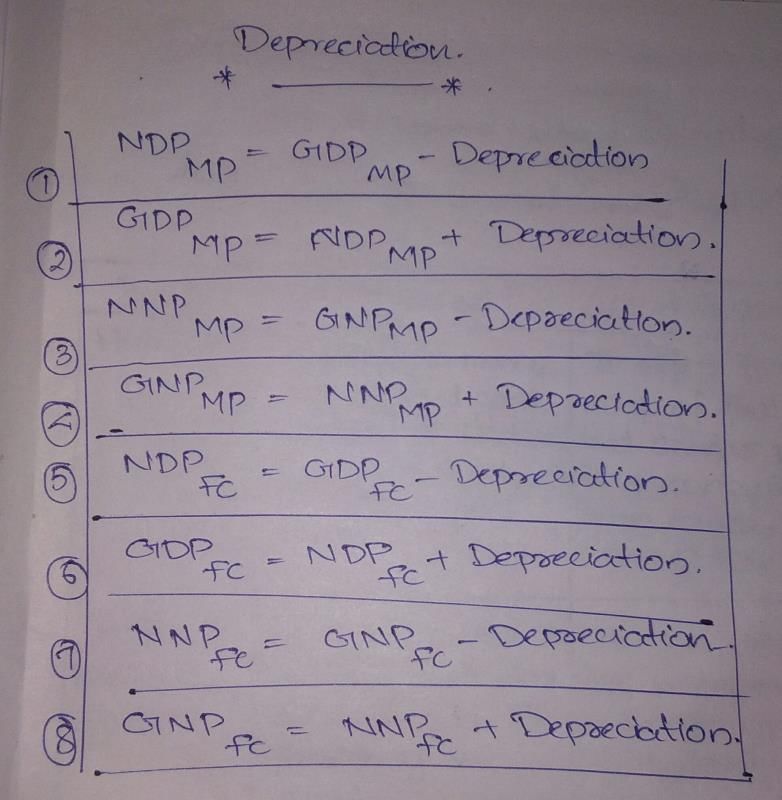 Depreciation.
* ——— * .
① NDP MP = GDP MP - Depreciation
② GDP MP = NDP MP + Depreciation.
③ NNP MP = GNP MP - Depreciation.
④ GNP MP = NNP MP + Depreciation.
⑤ NDP FC = GDP FC - Depreciation.
⑥ GDP FC = NDP FC + Depreciation.
⑦ NNP FC = GNP FC - Depreciation.
⑧ GNP FC = NNP FC + Depreciation.